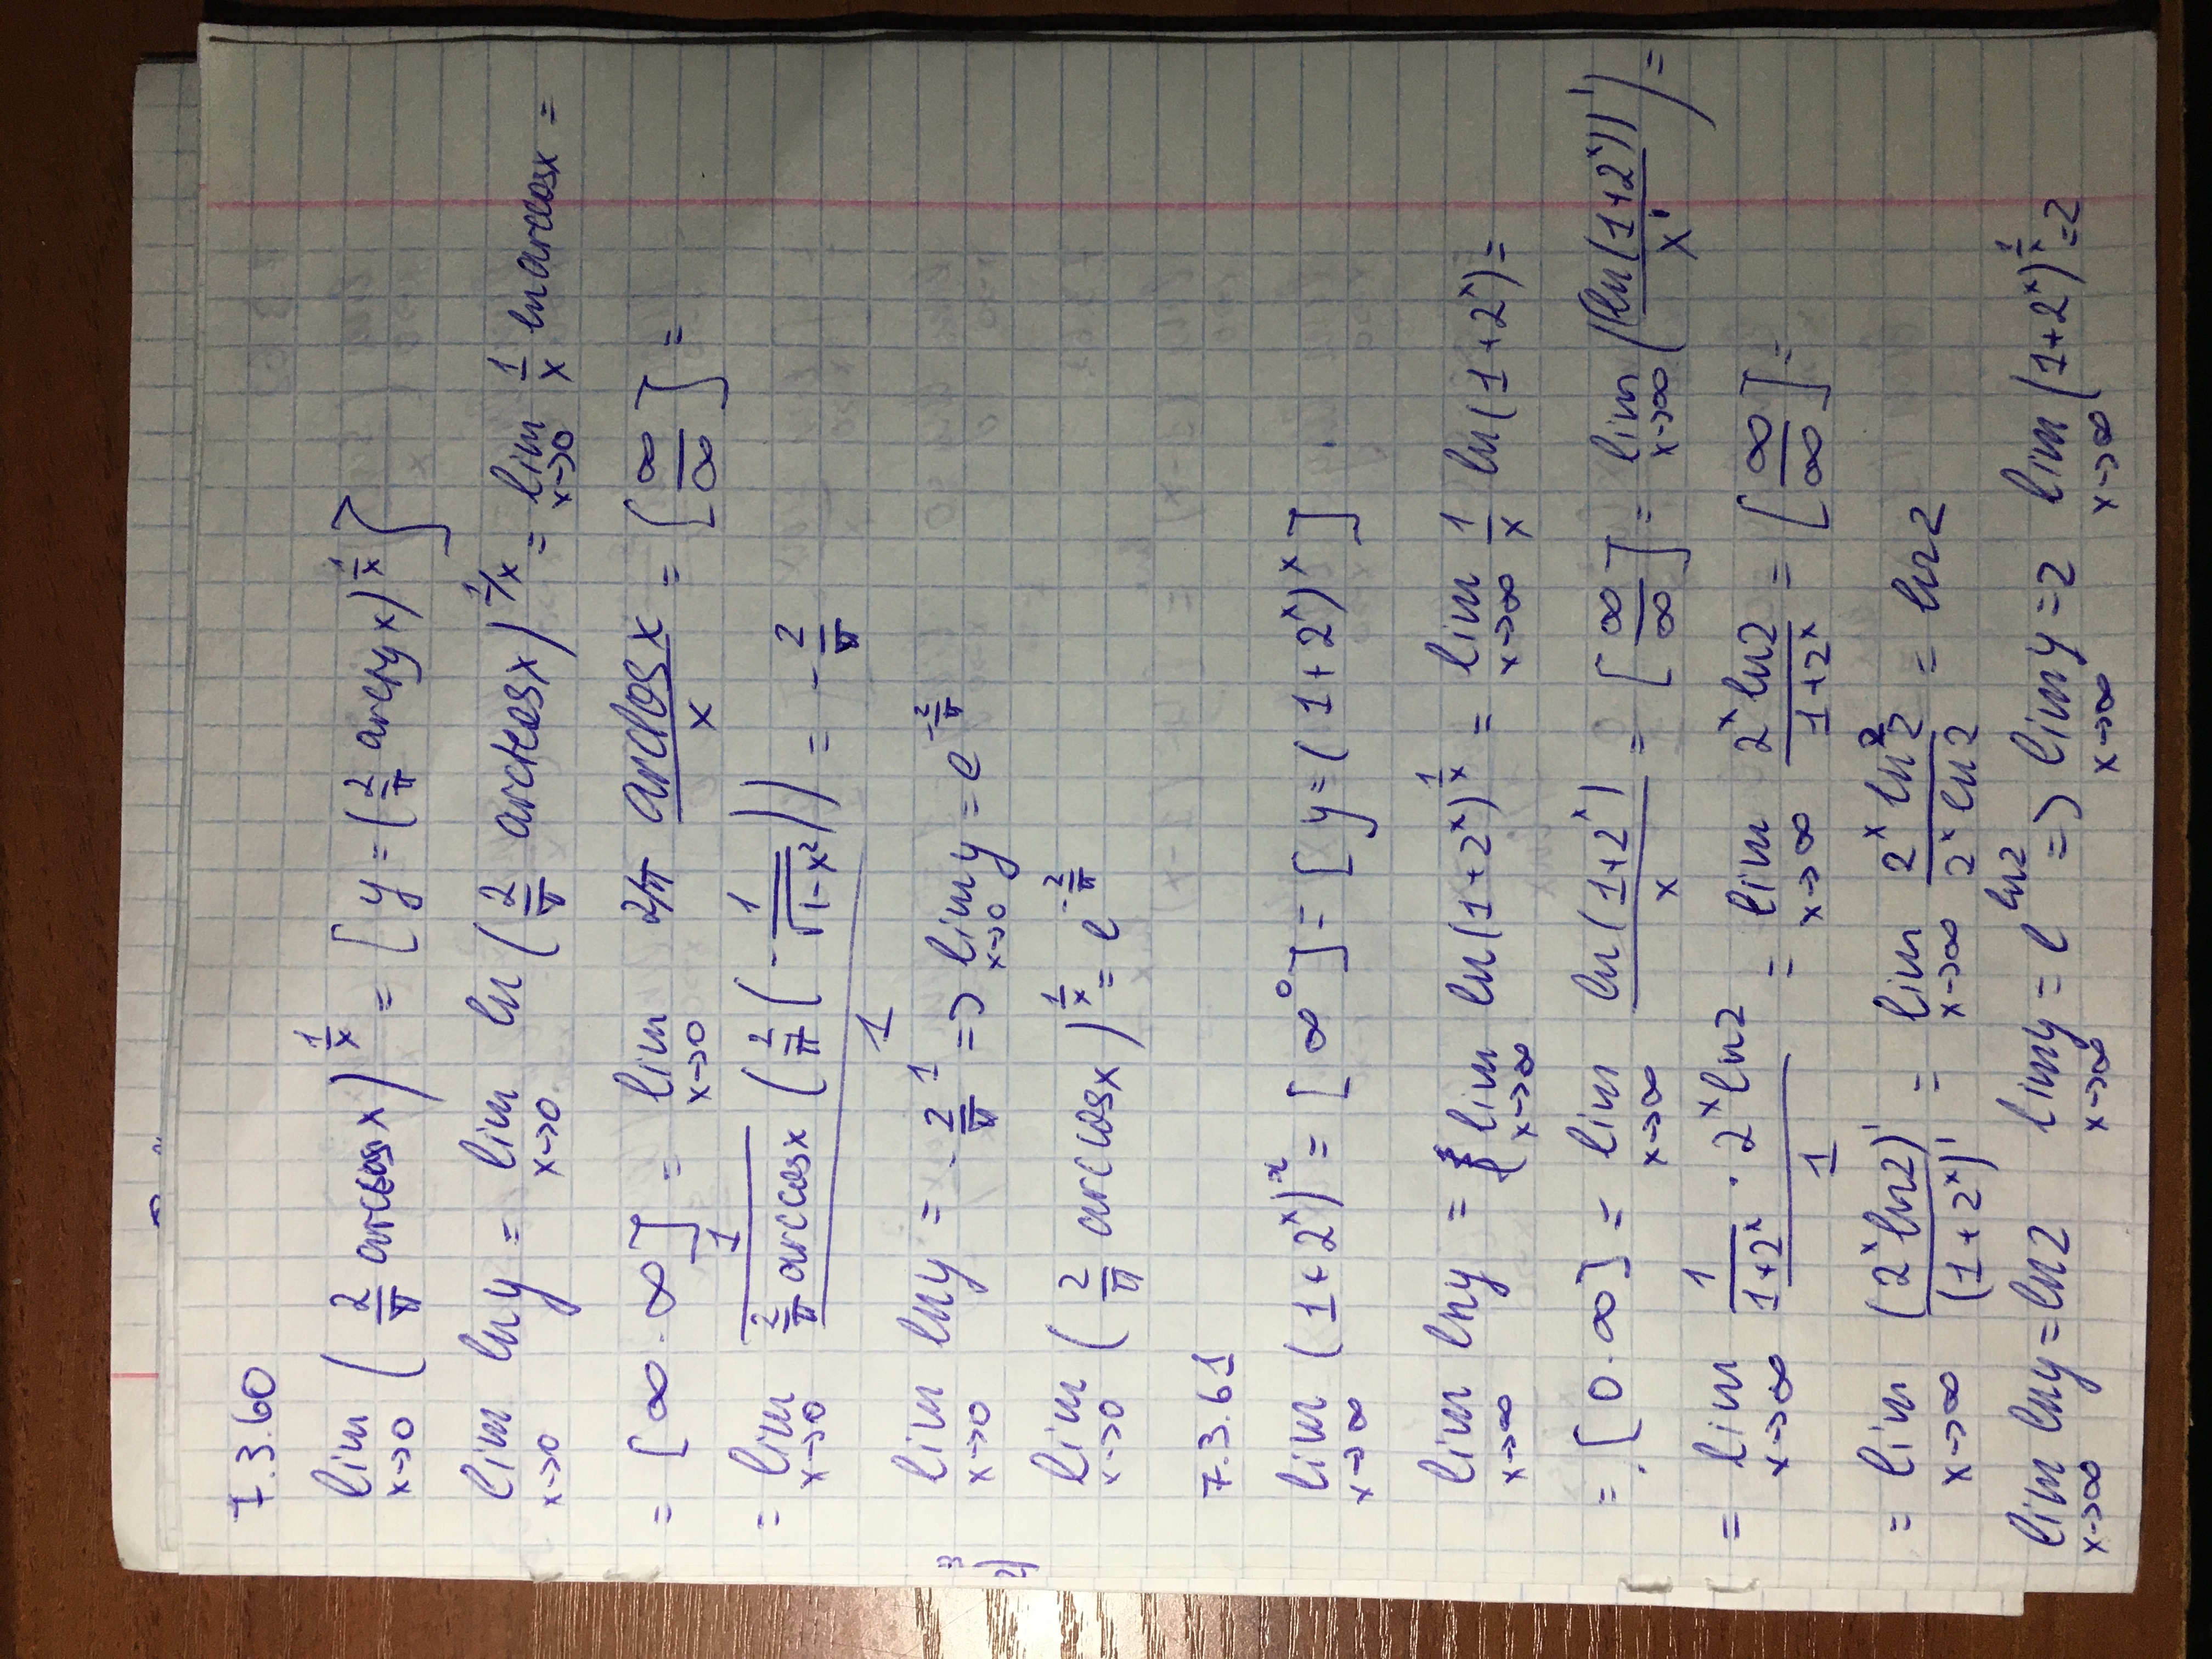 7.3.60
lim x→0 (2/π arccos x)^(1/x) = [y = (2/π arctg x)^(1/x)]
lim x→0 ln y = lim x→0 ln (2/π arccos x)^(1/x) = lim x→0 1/x ln arccos x =
= [∞ · ∞] = lim x→0 2/π arccos x / x = [∞/∞] =
= lim x→0 (1/(2/π arccos x) (2/π (-1/√(1-x²)))) / 1 = -2/π
lim x→0 ln y = -2/π 1 => lim x→0 y = e^(-2/π)
lim x→0 (2/π arccos x)^(1/x) = e^(-2/π)
7.3.61
lim x→∞ (1+2^x)^x = [∞^0] = [y = (1+2^x)^x]
lim x→∞ ln y = lim x→∞ ln(1+2^x)^(1/x) = lim x→∞ 1/x ln(1+2^x) =
= [0·∞] = lim x→∞ ln(1+2^x) / x = [∞/∞] = lim x→∞ ((ln(1+2^x))' / x') =
= lim x→∞ (1/(1+2^x) · 2^x ln2) / 1 = lim x→∞ 2^x ln2 / (1+2^x) = [∞/∞] =
= lim x→∞ (2^x ln2)' / (1+2^x)' = lim x→∞ 2^x ln²2 / (2^x ln2) = ln2
lim x→∞ ln y = ln2 lim x→∞ y = e^(ln2) => lim x→∞ y = 2 lim x→∞ (1+2^x)^(1/x) = 2